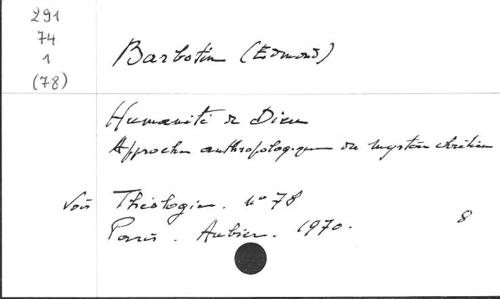 291
74
1
(78)
Barbotin (Edmond)
Humanité de Dieu
Approche anthropologique du mystère chrétien
Voir Théologie. n° 78
Paris. Aubier. 1970. 8